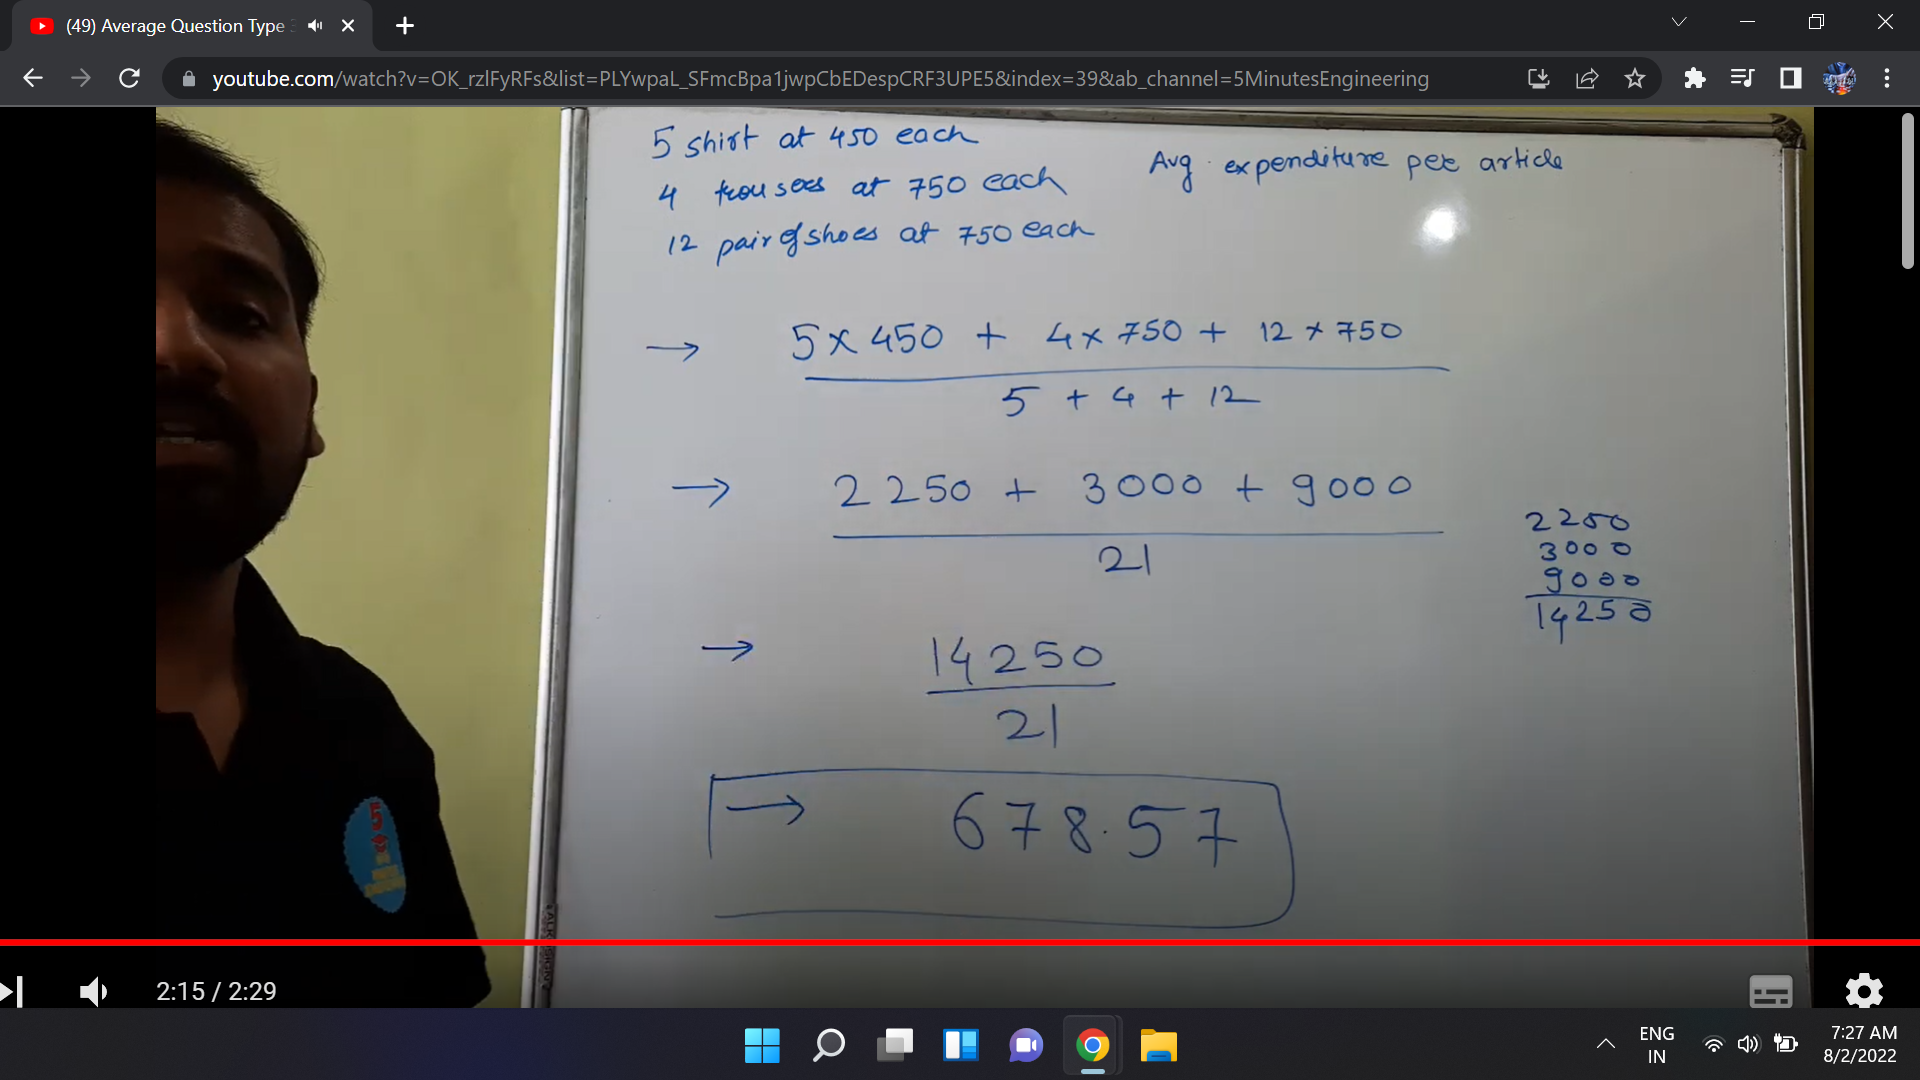 (49) Average Question Type
youtube.com/watch?v=OK_rzlFyRFs&list=PLYwpaL_SFmcBpa1jwpCbEDespCRF3UPE5&index=39&ab_channel=5MinutesEngineering
5 shirt at 450 each
4 trousers at 750 each
12 pair of shoes at 750 each
Avg. expenditure per article
→ 5 x 450 + 4 x 750 + 12 x 750
5 + 4 + 12
→ 2250 + 3000 + 9000
21
2250
3000
9000
14250
→ 14250
21
→ 678.57
5
2:15 / 2:29
ENG
IN
7:27 AM
8/2/2022